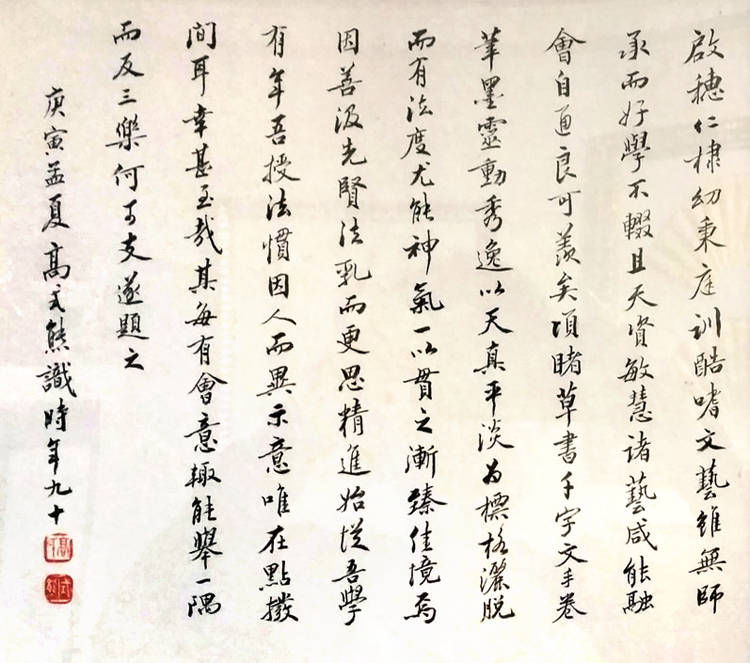 啟穗仁棣幼秉庭訓酷嗜文藝雖無師
承而好學不輟且天資敏慧諸藝咸能融
會自通良可羨矣頃睹草書千字文手卷
筆墨靈動秀逸以天真平淡為標格灑脫
而有法度尤能神氣一以貫之漸臻佳境焉
因善汲先賢法乳而更思精進始從吾學
有年吾授法慣因人而異示意唯在點撥
間耳幸甚至哉其每有會意輒能舉一隅
而反三樂何可支遂題之
庚寅孟夏高式熊識時年九十
高
式熊